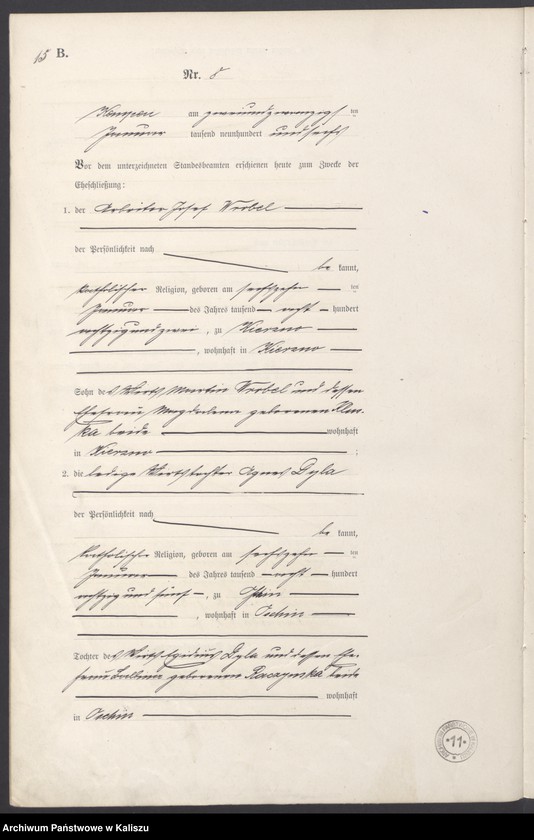 15 B.
Nr. 8
Kempen am zweiundzwanzigsten
Januar tausend neunhundert und sechs
Vor dem unterzeichneten Standesbeamten erschienen heute zum Zwecke der
Eheschließung:
1. der Arbeiter Josef Wrobel
der Persönlichkeit nach
be kannt,
katholischer Religion, geboren am sechszehn ten
Januar des Jahres tausend acht hundert
achtzig und zwei, zu Kierzno
, wohnhaft in Kierzno
Sohn des Wirts Martin Wrobel und dessen
Ehefrau Magdalena geborenen
beide wohnhaft
in Kierzno ;
2. die ledige Wirtstochter Agnes Dyla
der Persönlichkeit nach
be kannt,
katholischer Religion, geboren am sechszehn ten
Januar des Jahres tausend acht hundert
achtzig und fünf, zu
, wohnhaft in
Tochter des Wirts Dyla und dessen Ehe-
frau geborenen beide
wohnhaft
in
*11*
Archiwum Państwowe w Kaliszu